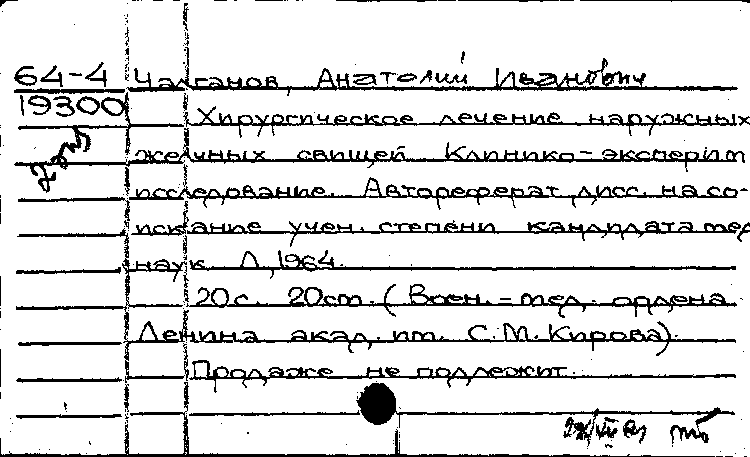 64-4 Чалганов, Анатолий Иванович
19300 Хирургическое лечение наружных
желчных свищей. Клинико-эксперим
исследование. Автореферат дисс. на со-
искание учен. степени кандидата мед
наук. Л., 1964.
20 с. 20 см. (Воен.-мед. ордена
Ленина акад. им. С.М. Кирова).
Продаже не подлежит.